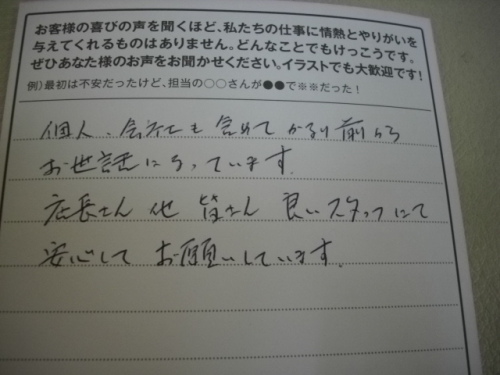 お客様の喜びの声を聞くほど、私たちの仕事に情熱とやりがいを
与えてくれるものはありません。どんなことでもけっこうです。
ぜひあなた様のお声をお聞かせください。イラストでも大歓迎です!
例)最初は不安だったけど、担当の○○さんが●●で※※だった!
個人、会社も含めてかなり前から
お世話になっています。
店長さん他皆さん良いスタッフにて
安心してお願いしています。